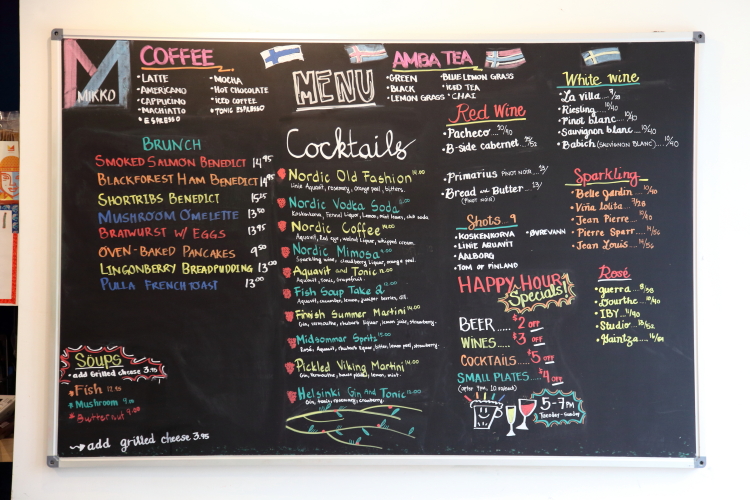 M
MIKKO
COFFEE
•LATTE
•AMERICANO
•CAPPUCINO
•MACHIATTO
•ESPRESSO
•MOCHA
•HOT CHOCOLATE
•ICED COFFEE
•TONIC ESPRESSO
MENU
AMBA TEA
•GREEN
•BLACK
•LEMON GRASS
•BLUE LEMON GRASS
•ICED TEA
•CHAI
BRUNCH
SMOKED SALMON BENEDICT 14.95
BLACKFOREST HAM BENEDICT 14.95
SHORTRIBS BENEDICT 15.25
MUSHROOM OMELETTE 13.50
BRATWURST W/ EGGS 13.95
OVEN-BAKED PANCAKES 9.50
LINGONBERRY BREADPUDDING 13.00
PULLA FRENCH TOAST 13.00
SOUPS
•add Grilled cheese 3.95
•Fish
•Mushroom
•Butternut
→ add grilled cheese 3.95
Cocktails
Nordic Old Fashion 14.00
Linie Aquavit, rosemary, orange peel, bitters.
Nordic Vodka Soda
Koskenkorva, Fennel Liquor, Lemon, mint leaves, club soda.
Nordic Coffee
Aquavit, Red eye, walnut Liquor, whipped cream.
Nordic Mimosa
Sparkling wine, cloudberry liquor, orange peel.
Aquavit and Tonic
Aquavit, tonic, grapefruit.
Fish Soup Take 2
Aquavit, cucumber, lemon, juniper berries, dill.
Finnish Summer Martini 14.00
Gin, vermouthe, rhubarb liquor, lemon juice, strawberry.
Midsommar Spritz
Rosé, Aquavit, rhubarb liquor, bitter, lemon peel, strawberry.
Pickled Viking Martini 14.00
Gin, Vermouthe, lemon, mint.
Helsinki Gin and Tonic
Gin, tonic, rosemary, cranberry.
Red Wine
•Pacheco 10/40
•B-side cabernet
•Primarius PINOT NOIR 13/
•Bread and Butter 13/
(PINOT NOIR)
Shots 9
•KOSKENKORVA
•LINIE AQUAVIT
•AALBORG
•TOM OF FINLAND
•ØVREVANN
HAPPY HOUR!
Specials!
BEER..... $2 OFF
WINES.... $3 OFF
COCKTAILS.... $5 OFF
SMALL PLATES.. $4 OFF
5-7PM
Tuesday-Sunday
White Wine
•La villa 9/38
•Riesling 10/40
•Pinot blanc 10/40
•Sauvignon blanc 10/40
•Babich (SAUVIGNON BLANC) 10/40
Sparkling
•Belle Jardin 10/40
•Viña lolita 9/38
•Jean Pierre 10/40
•Pierre Sparr 14/56
•Jean Louis 14/56
Rosé
•guerra 9/38
•Dourthe 10/40
•IBY 11/40
•Studio 13/52
•Gaintza 16/64